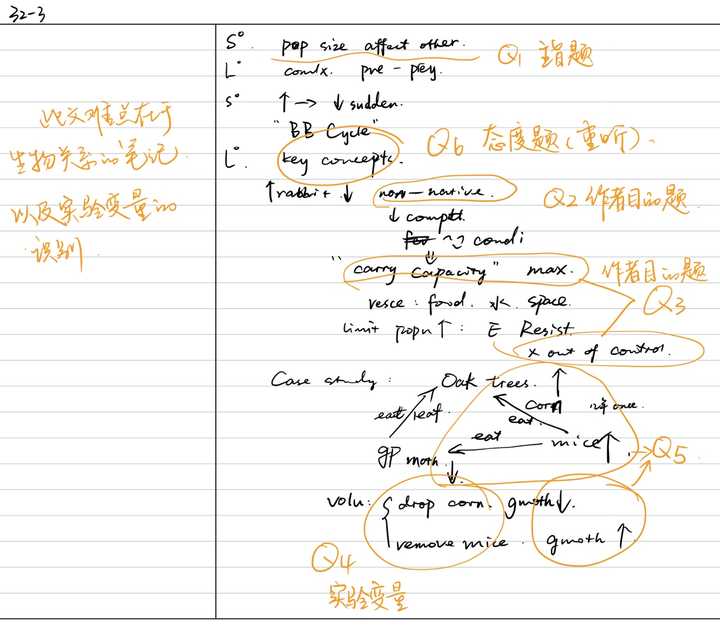 32-3
S°. pop size affect other. Q1 主旨题
L°. comlx. pre-prey.
S°. ↑→ ↓ sudden.
"BB Cycle" Q6 态度题(重听).
L°. key concepts.
↑rabbit ↓ non-native. Q2 作者目的题
↓ compet.
condi
"carry capacity" max. 作者目的题
resce: food. 水. space. Q3
limit popn↑: E Resist.
x out of control.
Case study: Oak trees.
corn once.
eat leaf. eat
eat mice↑ → Q5
gp moth
volu: { drop corn. gmoth↓.
remove mice. gmoth ↑
Q4
实验变量
此文难点在于
生物关系的笔记
以及实验变量的
识别.